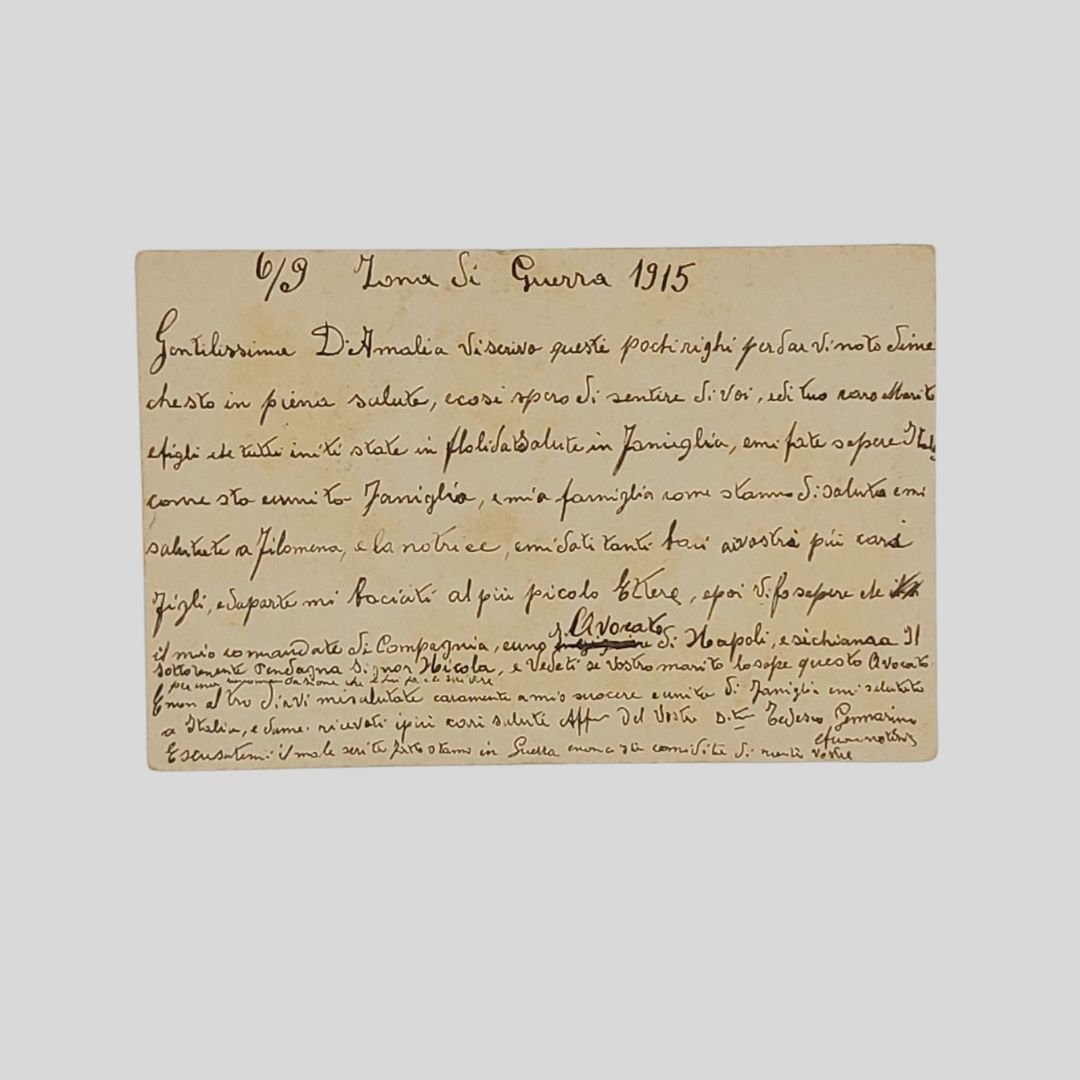 6/9 Zona di Guerra 1915
Gentilissima D. Amalia viscrivo questi pochi righi perdar vi noto dime
che sto in piena salute, ecosi spero di sentire di voi, edi tuo caro Marito
efigli che tutti initi state in florida salute in Faniglia, emi fate sapere
come sta eunito Faniglia, emia famiglia come stanno di saluta emi
salutate a Filomena, e la notrice, emidati tanti baci avostri più cari
Figli, edaparte mi baciati al più picolo Ettere, epoi vi fo sapere che
il mio comandate di Compagnia, euno Avocato di Napoli, esichiansa Il
Sottotenente Pendagna Signor Nicola, e Vedeti se Vostro marito lo sape questo Avocato
per una che
E non altro dirvi misalutate caramente amio suocere eunita di Faniglia emi salutate
a Italia, e dame ricevati ipiù cari saluti Aff Del Vostro Tedesco Gennarino
Escusatemi il male scrito stamo in Guerra di Vostre